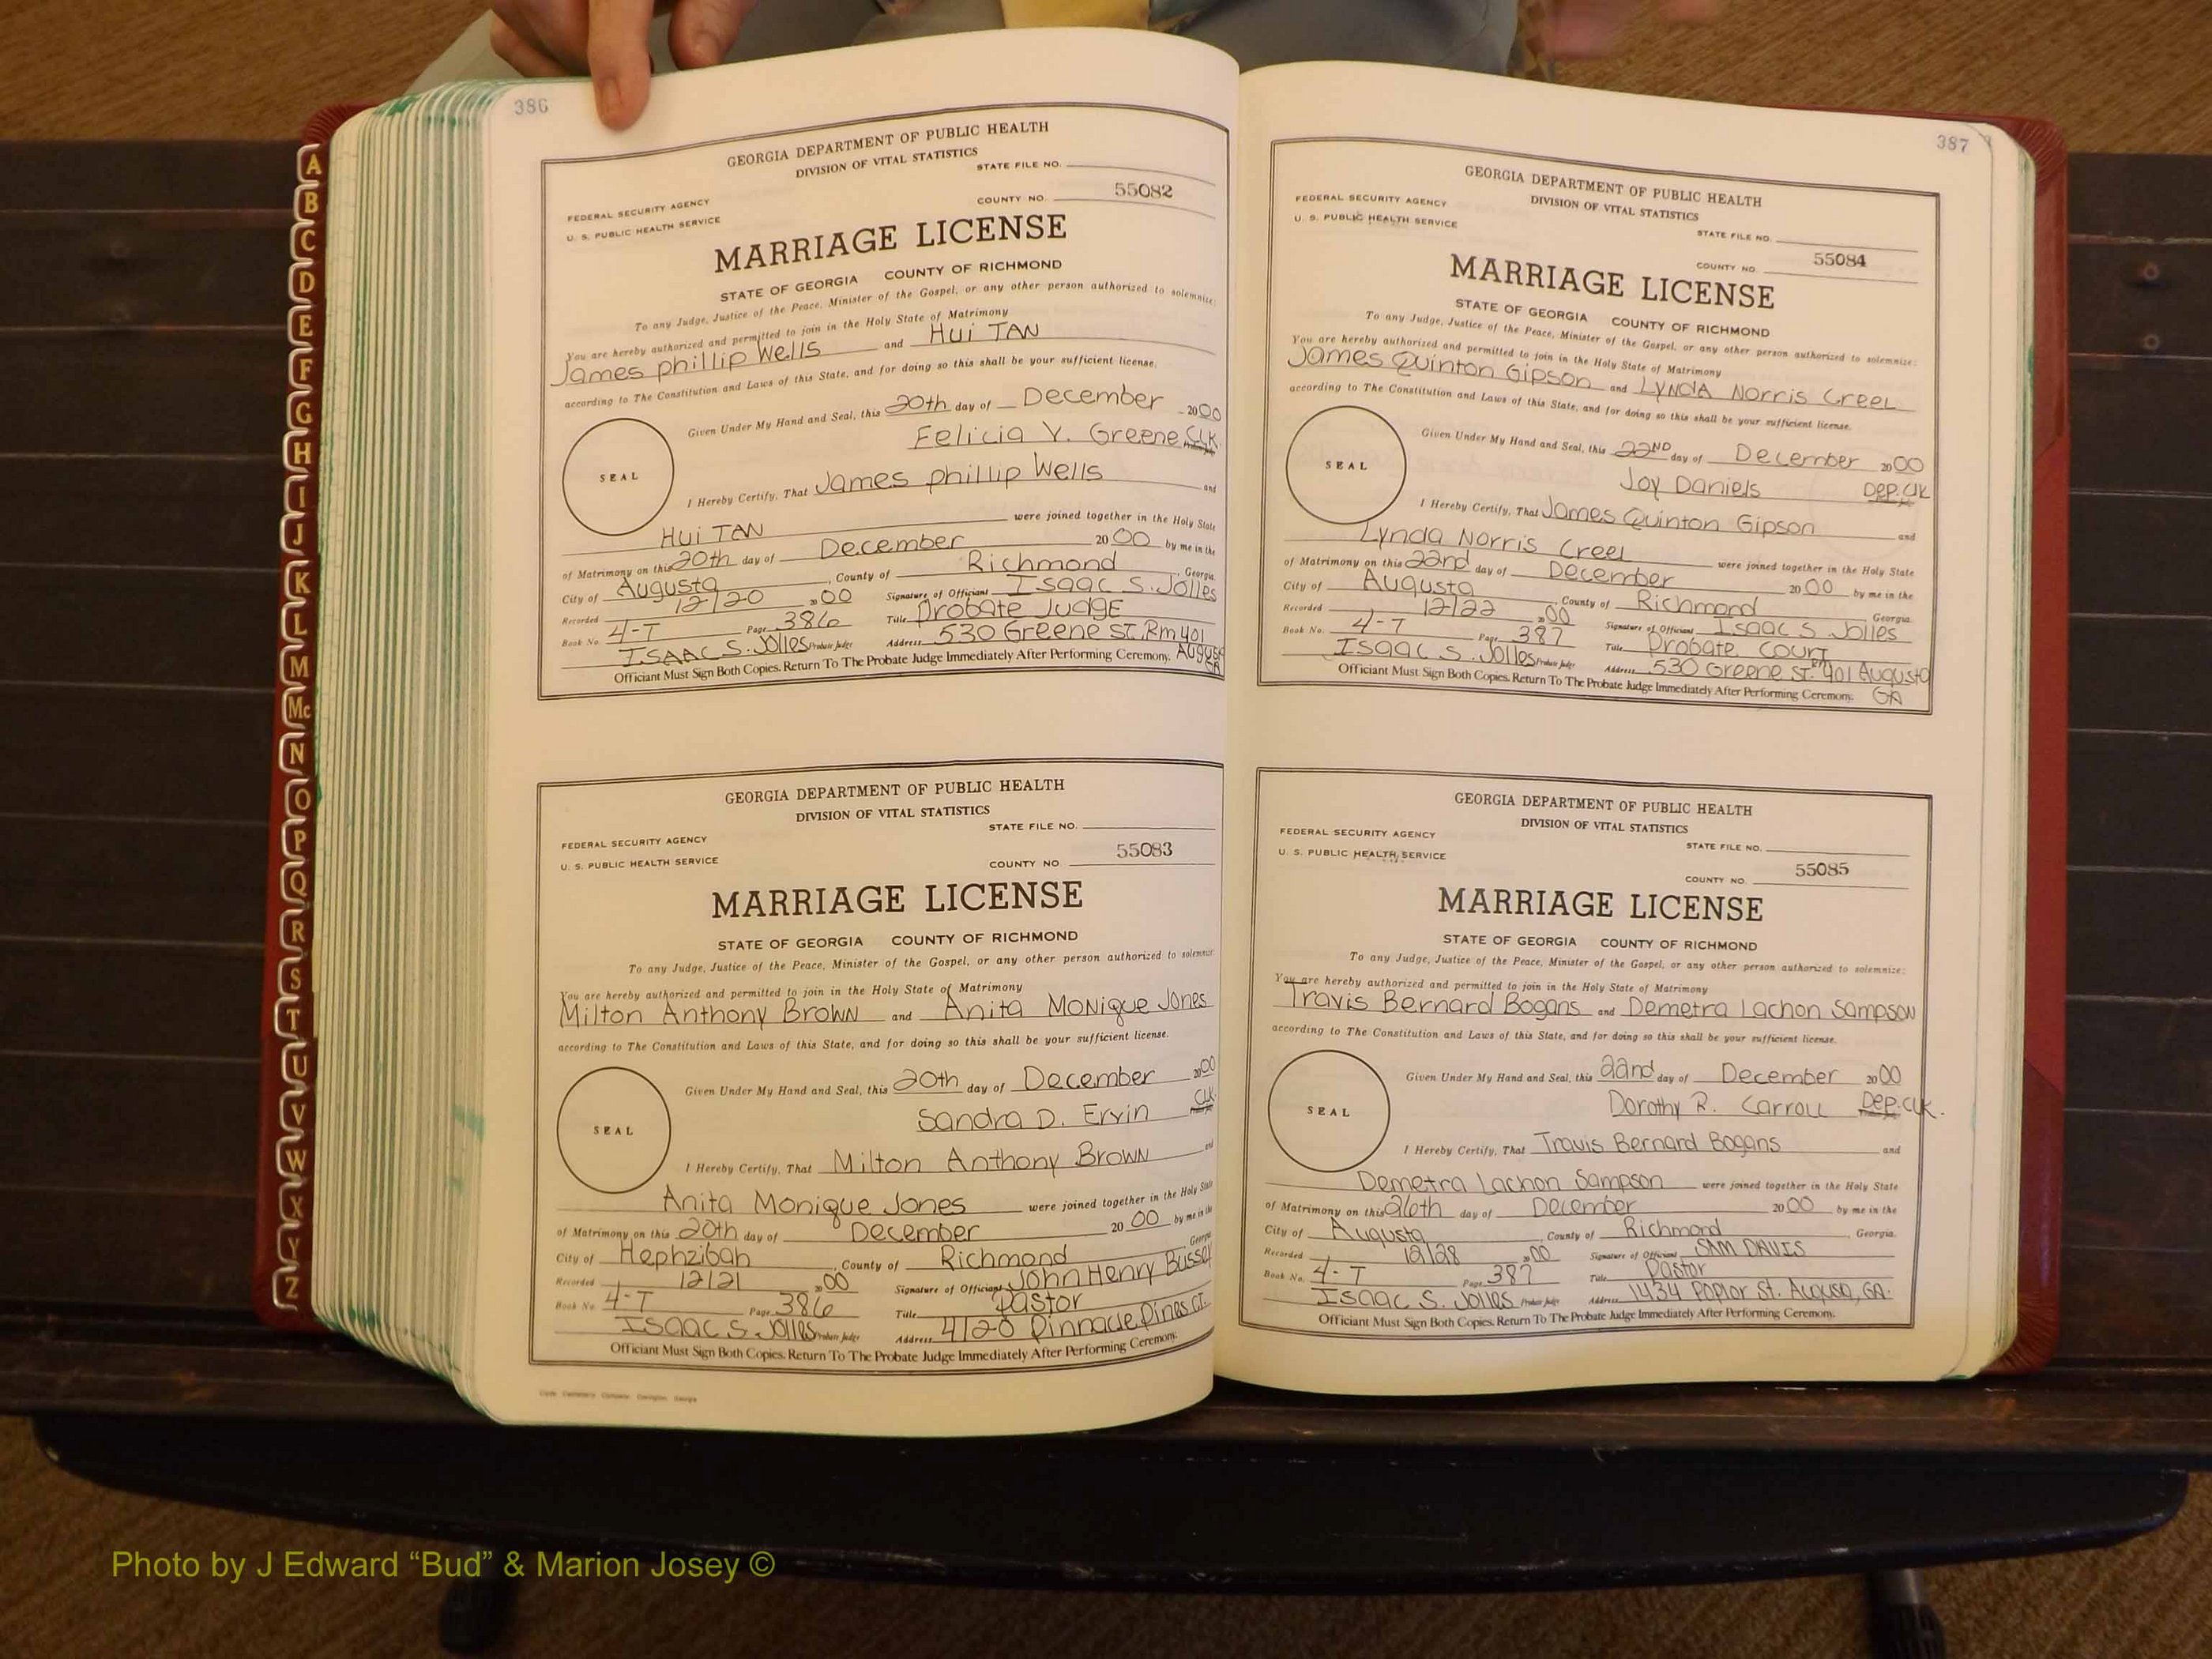 386
GEORGIA DEPARTMENT OF PUBLIC HEALTH
DIVISION OF VITAL STATISTICS
STATE FILE NO.
FEDERAL SECURITY AGENCY
U. S. PUBLIC HEALTH SERVICE
COUNTY NO. 55082
MARRIAGE LICENSE
STATE OF GEORGIA COUNTY OF RICHMOND
To any Judge, Justice of the Peace, Minister of the Gospel, or any other person authorized to solemnize:
You are hereby authorized and permitted to join in the Holy State of Matrimony
James phillip Wells and Hui TAN
according to The Constitution and Laws of this State, and for doing so this shall be your sufficient license.
Given Under My Hand and Seal, this 20th day of December 2000
Felicia V. Greene CLK.
SEAL
I Hereby Certify, That James phillip Wells and
Hui TAN were joined together in the Holy State
of Matrimony on this 20th day of December 2000 by me in the
City of Augusta, County of Richmond, Georgia.
Recorded 12/20 2000 Signature of Officiant Isaac S. Jolles
Book No. 4-T Page 386 Title Probate Judge
ISAAC S. Jolles Probate Judge Address 530 Greene St. Rm 401 Augusta GA
Officiant Must Sign Both Copies. Return To The Probate Judge Immediately After Performing Ceremony.
GEORGIA DEPARTMENT OF PUBLIC HEALTH
DIVISION OF VITAL STATISTICS
STATE FILE NO.
FEDERAL SECURITY AGENCY
U. S. PUBLIC HEALTH SERVICE
COUNTY NO. 55083
MARRIAGE LICENSE
STATE OF GEORGIA COUNTY OF RICHMOND
To any Judge, Justice of the Peace, Minister of the Gospel, or any other person authorized to solemnize:
You are hereby authorized and permitted to join in the Holy State of Matrimony
Milton Anthony Brown and Anita Monique Jones
according to The Constitution and Laws of this State, and for doing so this shall be your sufficient license.
Given Under My Hand and Seal, this 20th day of December 2000
Sandra D. Ervin CLK.
SEAL
I Hereby Certify, That Milton Anthony Brown and
Anita Monique Jones were joined together in the Holy State
of Matrimony on this 20th day of December 2000 by me in the
City of Hephzibah, County of Richmond Georgia
Recorded 12/21 2000 Signature of Officiant John Henry Bussey
Book No. 4-T Page 386 Title pastor
Isaac S. Jolles Probate Judge Address 4120 Pinnacle Pines CT.
Officiant Must Sign Both Copies. Return To The Probate Judge Immediately After Performing Ceremony.
387
GEORGIA DEPARTMENT OF PUBLIC HEALTH
DIVISION OF VITAL STATISTICS
FEDERAL SECURITY AGENCY
U. S. PUBLIC HEALTH SERVICE
STATE FILE NO.
COUNTY NO. 55084
MARRIAGE LICENSE
STATE OF GEORGIA COUNTY OF RICHMOND
To any Judge, Justice of the Peace, Minister of the Gospel, or any other person authorized to solemnize:
You are hereby authorized and permitted to join in the Holy State of Matrimony
James Quinton Gipson and Lynda Norris Creel
according to The Constitution and Laws of this State, and for doing so this shall be your sufficient license.
Given Under My Hand and Seal, this 22ND day of December 2000
Joy Daniels Dep. Clk
SEAL
I Hereby Certify, That James Quinton Gipson and
Lynda Norris Creel were joined together in the Holy State
of Matrimony on this 22nd day of December 2000 by me in the
City of Augusta, County of Richmond Georgia.
Recorded 12/22 2000 Signature of Officiant Isaac S. Jolles
Book No. 4-T Page 387 Title Probate Court
Isaac S. Jolles Probate Judge Address 530 Greene St. Rm 401 Augusta GA
Officiant Must Sign Both Copies. Return To The Probate Judge Immediately After Performing Ceremony.
GEORGIA DEPARTMENT OF PUBLIC HEALTH
DIVISION OF VITAL STATISTICS
FEDERAL SECURITY AGENCY
U. S. PUBLIC HEALTH SERVICE
STATE FILE NO.
COUNTY NO. 55085
MARRIAGE LICENSE
STATE OF GEORGIA COUNTY OF RICHMOND
To any Judge, Justice of the Peace, Minister of the Gospel, or any other person authorized to solemnize:
You are hereby authorized and permitted to join in the Holy State of Matrimony
Travis Bernard Bogans and Demetra Lachon Sampson
according to The Constitution and Laws of this State, and for doing so this shall be your sufficient license.
Given Under My Hand and Seal, this 22nd day of December 2000
Dorothy R. Carroll Dep. Clk.
SEAL
I Hereby Certify, That Travis Bernard Bogans and
Demetra Lachon Sampson were joined together in the Holy State
of Matrimony on this 26th day of December 2000 by me in the
City of Augusta, County of Richmond, Georgia.
Recorded 12/28 2000 Signature of Officiant SAM DAVIS
Book No. 4-T Page 387 Title Pastor
Isaac S. Jolles Probate Judge Address 1434 Poplar St. Augusa, GA.
Officiant Must Sign Both Copies. Return To The Probate Judge Immediately After Performing Ceremony.
A
B
C
D
E
F
G
H
I
J
K
L
M
Mc
N
O
P
Q
R
S
T
U
V
W
X
Y
Z
Photo by J Edward “Bud” & Marion Josey ©